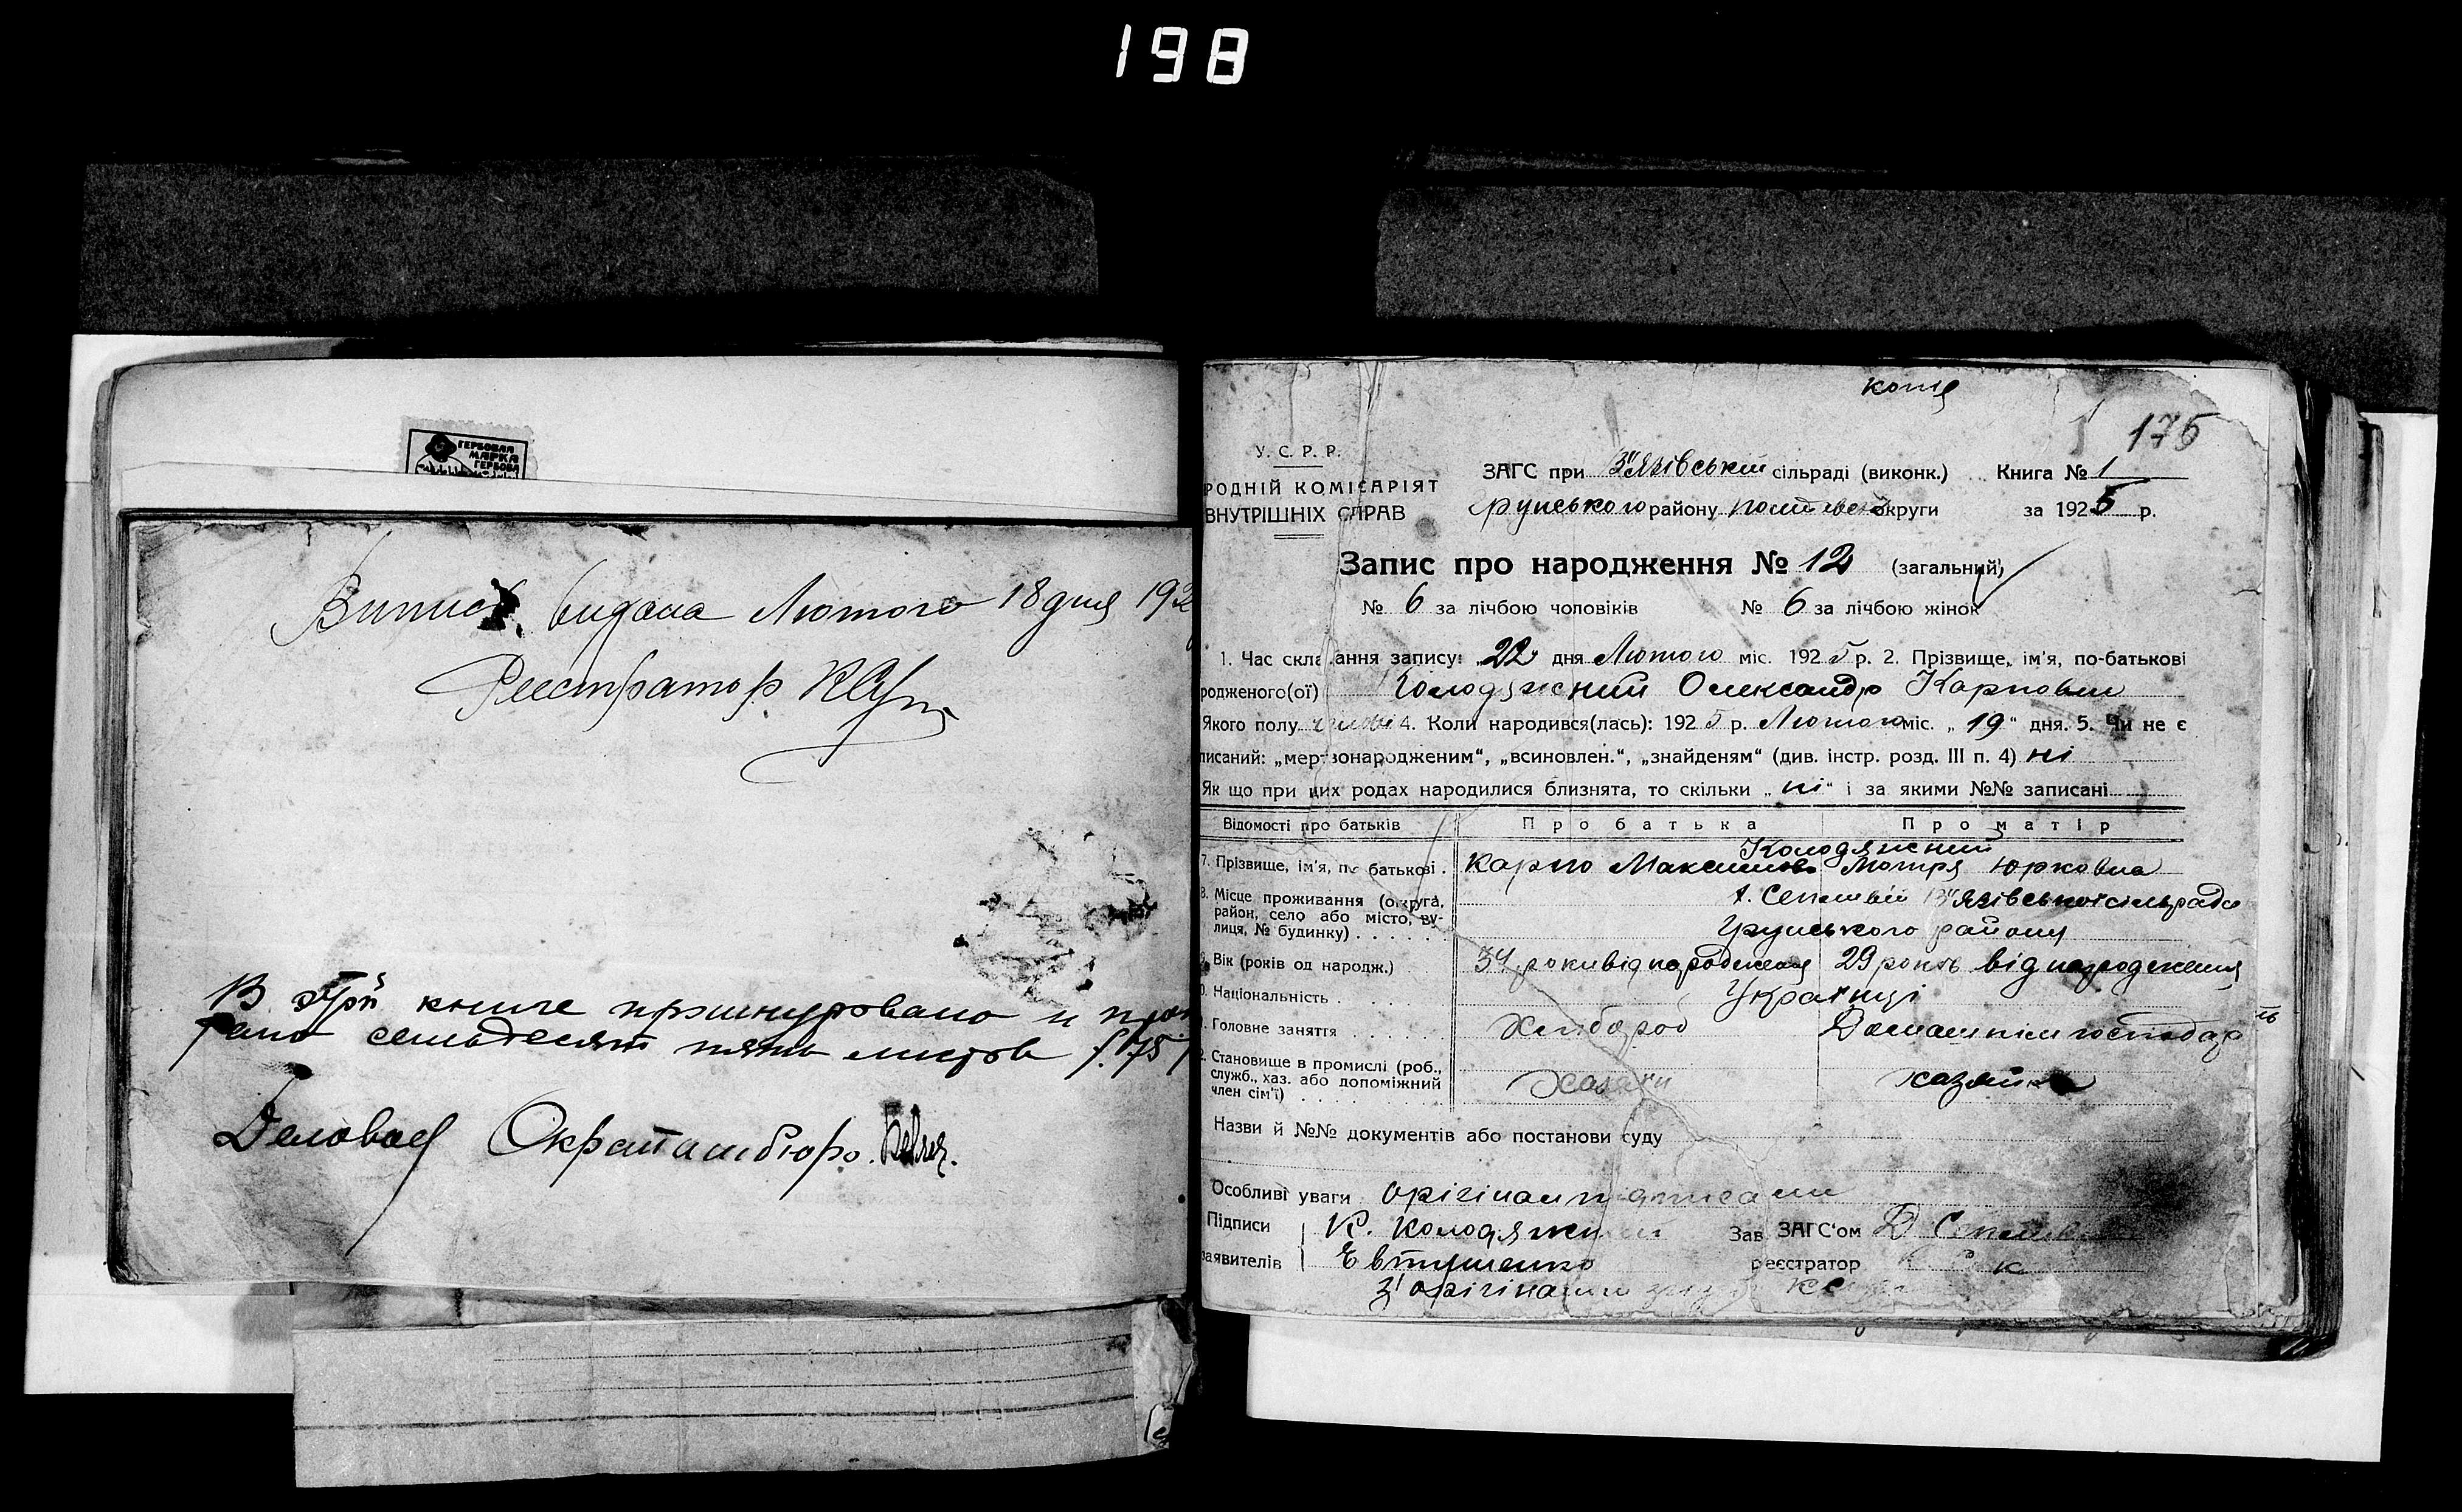 198
ГЕРБОВАЯ
МАРКА
ГЕРБОВА
Випись видана Лютого 18 дня 192
Реєстратор
В этой книге пришнуровано и прон
рано семьдесят пять листов (75)
Деловод Окрстатбюро.
копія
176
У. С. Р. Р.
РОДНІЙ КОМІСАРІЯТ
ВНУТРІШНІХ СПРАВ
ЗАГС при З'Язівській сільраді (виконк.) Книга № 1
Грунського району Полтавської округи за 1925 р.
Запис про народження № 12 (загальний)
№ 6 за лічбою чоловіків № 6 за лічбою жінок
1. Час складання запису: 22 дня Лютого міс. 1925 р. 2. Прізвище, ім'я, по-батькові
родженого(ої) Колодяжний Олександр Карпович
Якого полу чолові 4. Коли народився(лась): 1925 р. Лютого міс. „19“ дня. 5. Чи не є
писаний: „мертвонародженим“, „всиновлен.“, „знайденям“ (див. інстр. розд. III п. 4) ні
Як що при цих родах народилися близнята, то скільки „ні“ і за якими №№ записані
Відомості про батьків Про батька Про матір
Колодяжний
7. Прізвище, ім'я, по батькові. Карпо Максимов Мотря Юрковна
8. Місце проживання (округа, район, село або місто, вулиця, № будинку) З'Язівської сільради
Грунського району
9. Вік (років од народж.) 34 роки від народження 29 років від народження
10. Національність Українці
11. Головне заняття Хлібороб Домашнім господар
12. Становище в промислі (роб., служб., хаз. або допоміжний член сім'ї) Хазяїн хазяйка
Назви й №№ документів або постанови суду
Особливі уваги орігінал підписали
Підписи К. Колодяжний Зав. ЗАГС'ом Д
заявителів Євтушенко реєстратор К
З орігіналом